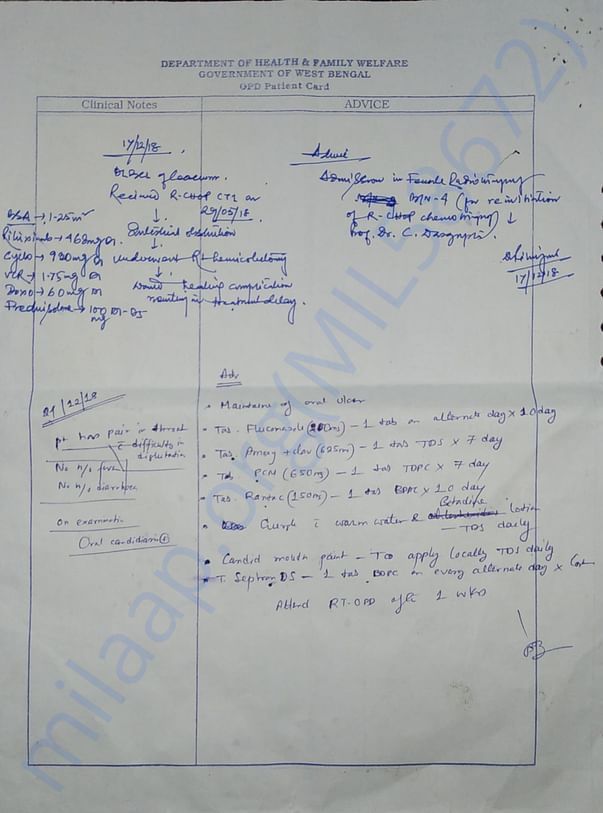 DEPARTMENT OF HEALTH & FAMILY WELFARE
GOVERNMENT OF WEST BENGAL
OPD Patient Card
Clinical Notes
ADVICE
17/12/18
Received R-CHOP CT1 on
29/05/18
↓
↓
underwent Rt hemicolectomy
↓
healing complication
resulting in treatment delay.
BSA → 1.25 m²
Rituximab → 468mg
Cyclo → 930mg
VCR → 1.75mg
Doxo → 60mg
Prednisolone → 100
mg
Advice
Admission in Female Radiotherapy
(for reinstitution
of R-CHOP chemotherapy) ↓
Prof. Dr. C. Dasgupta.
17/12/18
21/12/18
Pt has pain in throat
c̄ difficulty in
deglutition
No h/o fever
No h/o diarrhoea
On examination
Oral candidiasis ⊕
Adv
• Maintain of oral ulcer
• Tab. Fluconazole (200mg) – 1 tab on alternate day x 10 day
• Tab. Amoxy + clav (625mg) – 1 tab TDS x 7 day
• Tab PCM (650mg) – 1 tab TDPC x 7 day
• Tab. Rantac (150mg) – 1 tab BDAC x 10 day
• Gurgle c̄ warm water & Betadine lotion
– TDS daily
• Candid mouth paint – To apply locally TDS daily
• T. Septran DS – 1 tab BDPC on every alternate day x Cont
Attend RT-OPD after 1 wks
milaap.org(MIL519672)